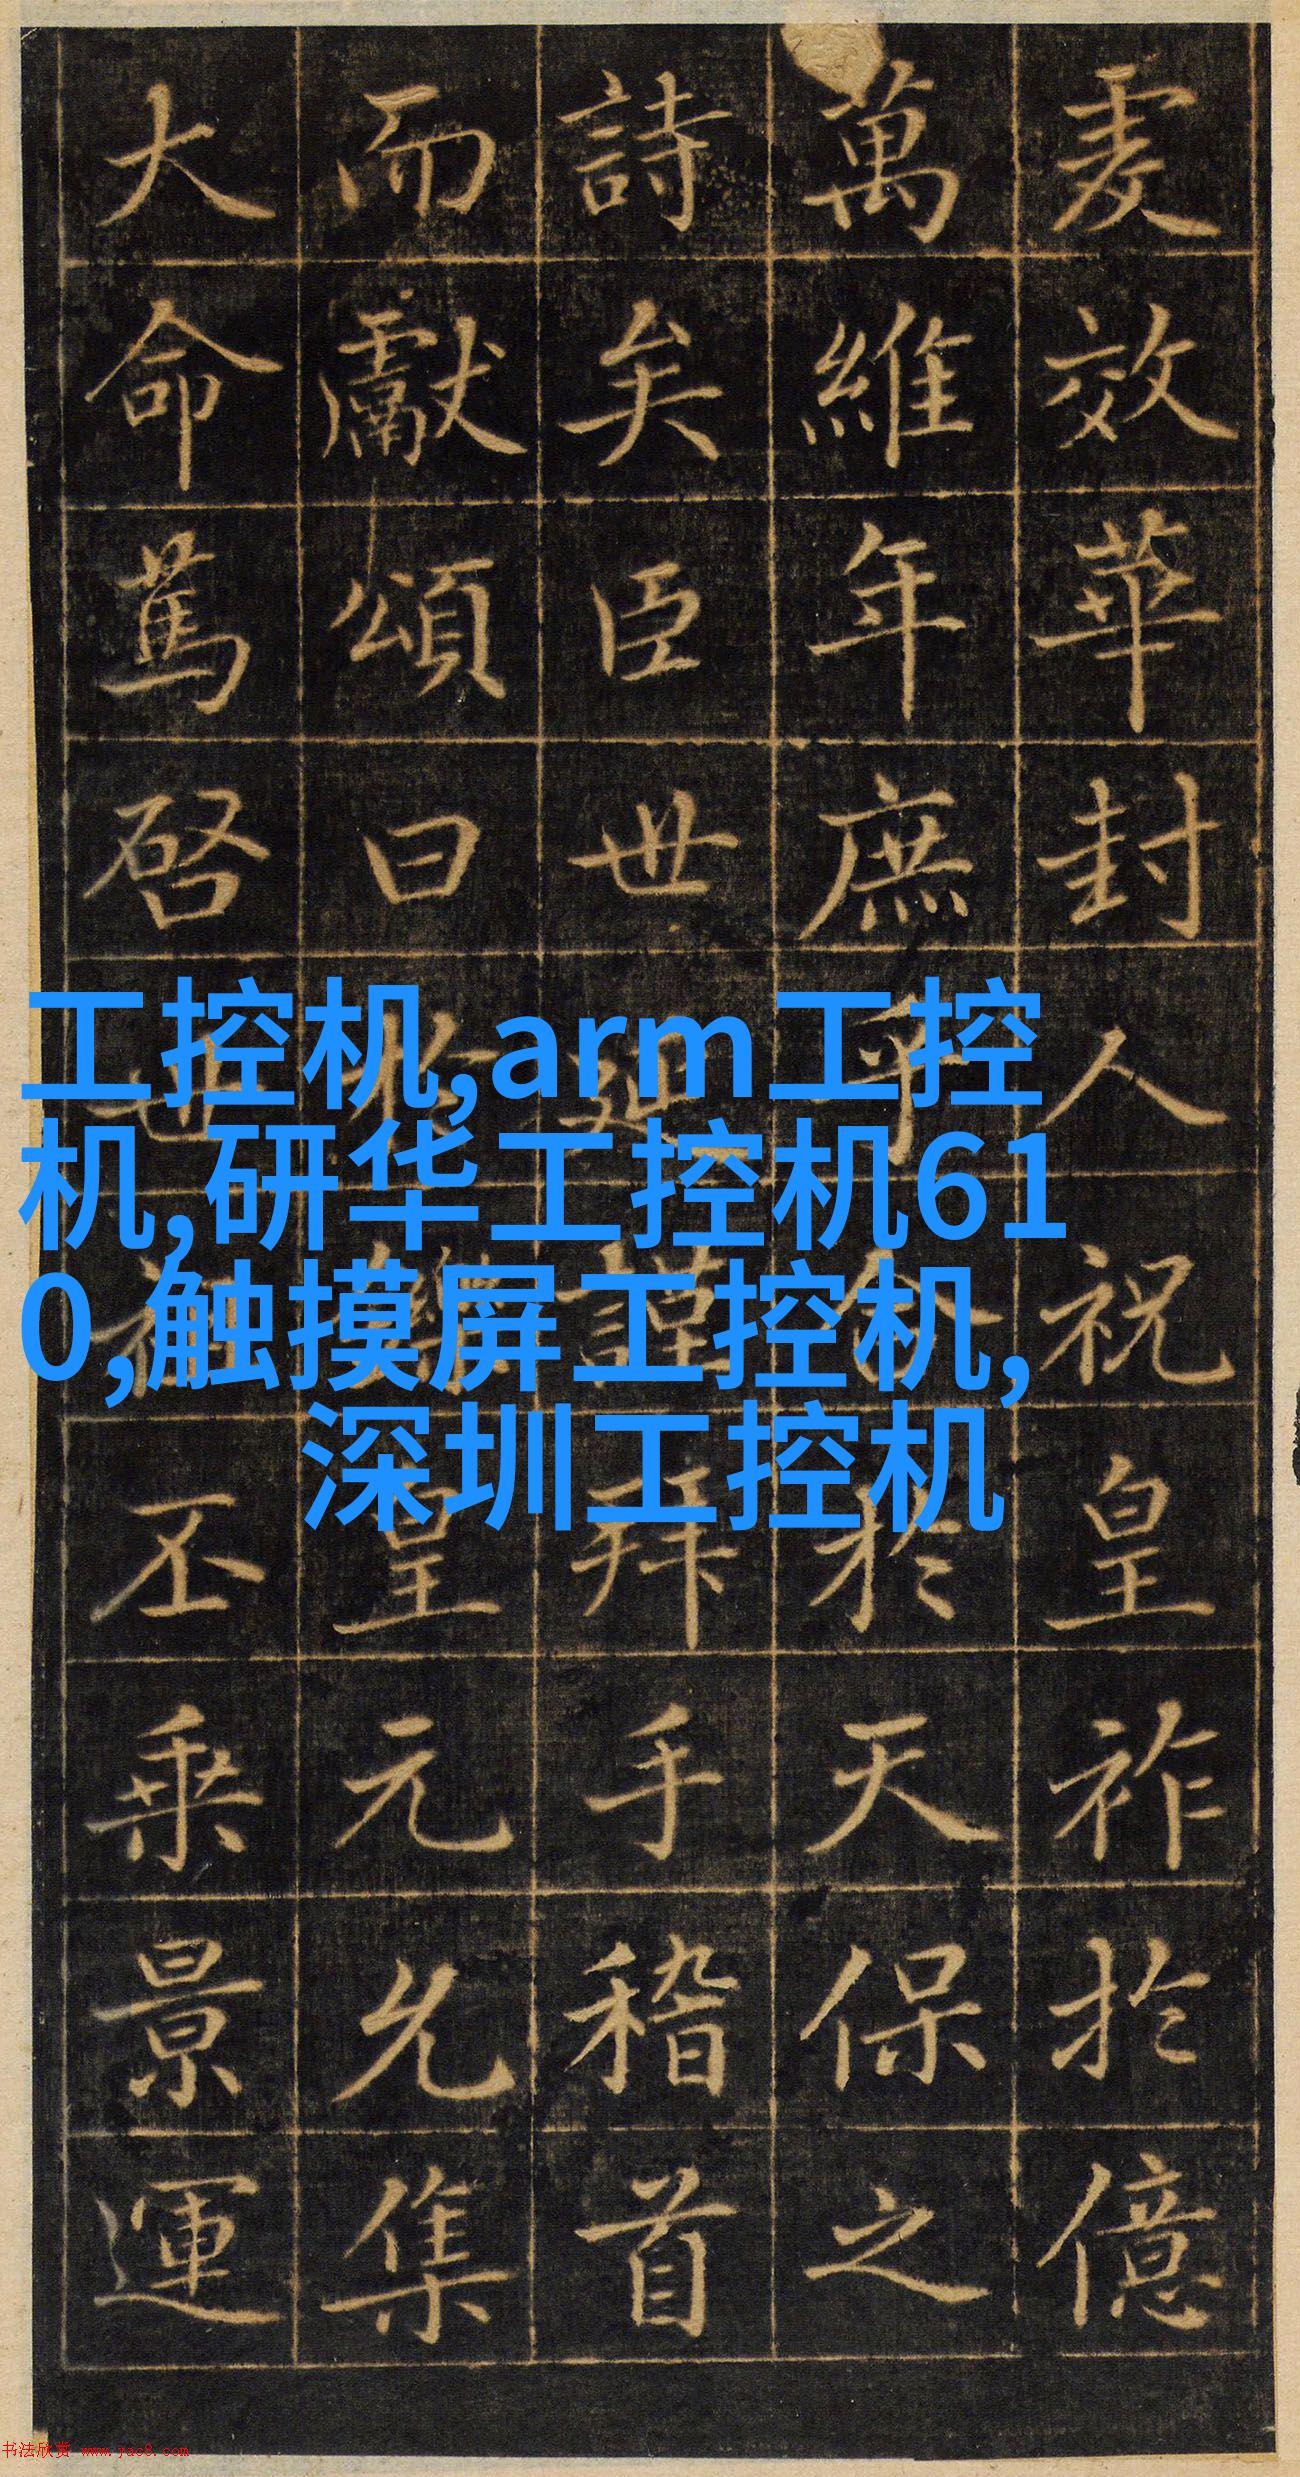 效華封人祝皇祚於億
萬維年庶乎合於天保之
詩矣臣世延謹拜手稽首
而獻頌曰於皇元允集
大命篤啓世祖丕乘景運
工控机,arm工控
机,研华工控机61
0,触摸屏工控机,
深圳工控机
书法欣赏 www.yac8.com